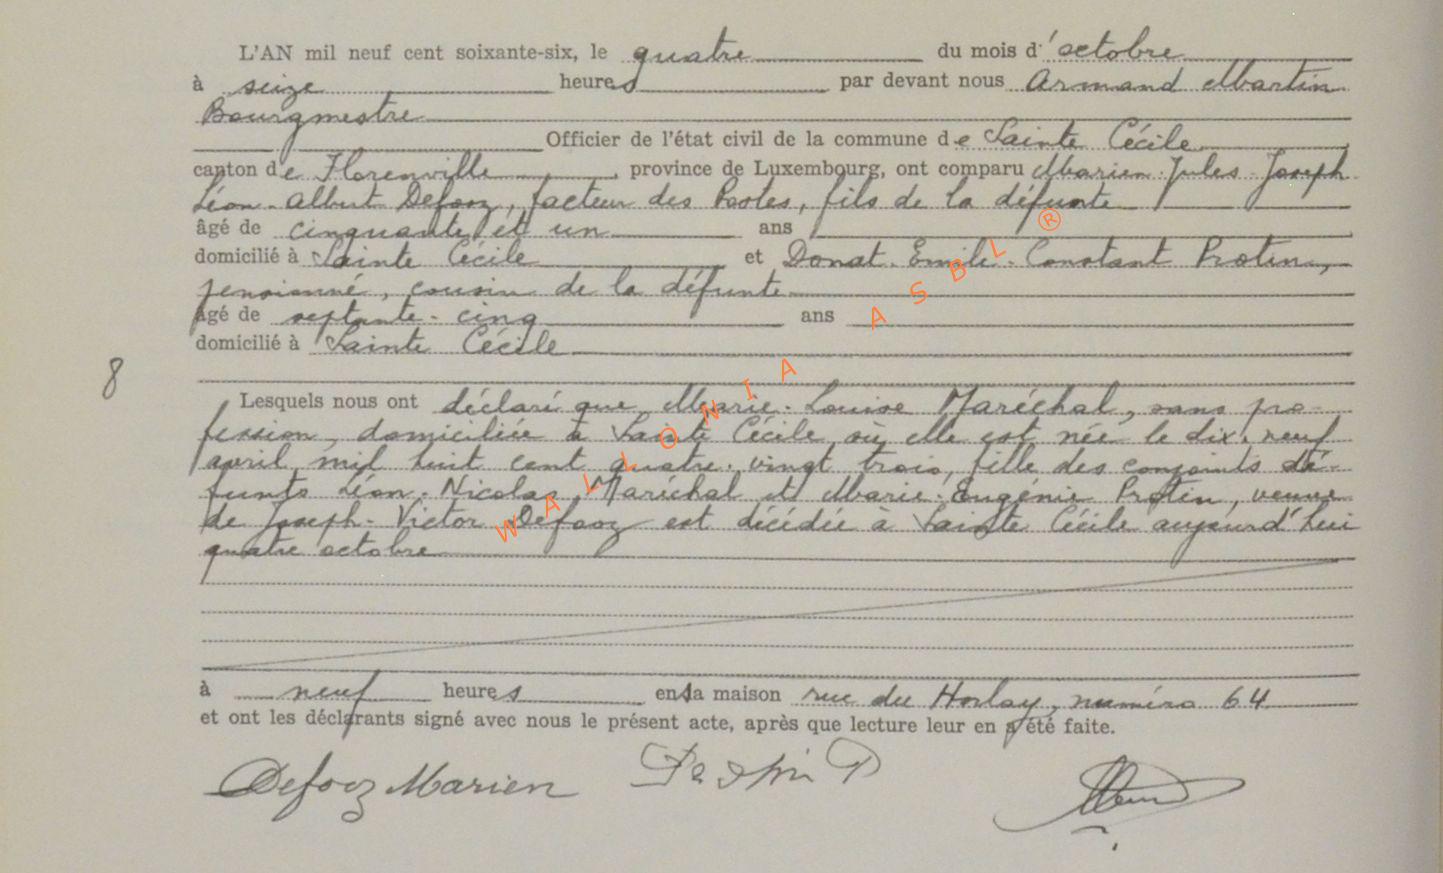 L'AN mil neuf cent soixante-six, le quatre du mois d'octobre
à seize heures par devant nous Armand Martin
Bourgmestre
Officier de l'état civil de la commune de Sainte Cécile
canton de Florenville, province de Luxembourg, ont comparu Marien-Jules-Joseph-
Léon-Albert Defooz, facteur des Postes, fils de la défunte
âgé de cinquante et un ans
domicilié à Sainte Cécile et Donat-Emile-Constant Protin,
pensionné, cousin de la défunte
âgé de septante-cinq ans
domicilié à Sainte Cécile
8
Lesquels nous ont déclaré que Marie-Louise Maréchal, sans pro-
fession, domiciliée à Sainte Cécile où elle est née le dix-neuf
avril mil huit cent quatre-vingt trois, fille des conjoints dé-
funts Léon-Nicolas Maréchal et Marie-Eugénie Protin, veuve
de Joseph-Victor Defooz est décédée à Sainte Cécile aujourd'hui
quatre octobre
à neuf heures en sa maison rue du Horlay, numéro 64
et ont les déclarants signé avec nous le présent acte, après que lecture leur en a été faite.
Defooz Marien
WALLONIA ASBL ®